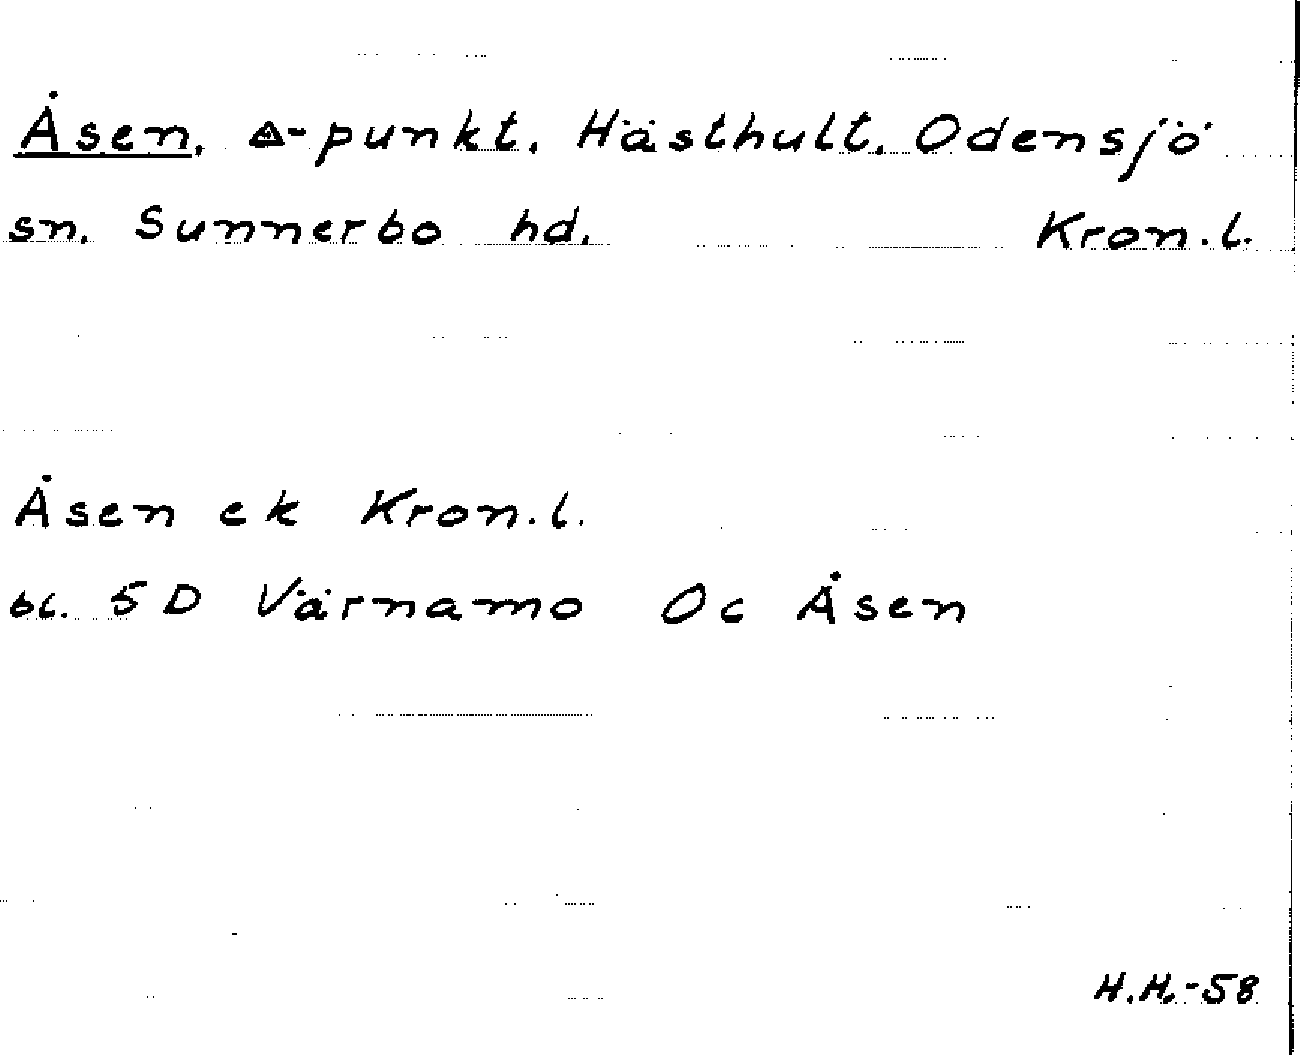 Åsen. △-punkt. Hästhult. Odensjö
sn. Sunnerbo hd. Kron.l.
Åsen ek Kron.l.
bl. 5 D Värnamo Oc Åsen
H.H.-58